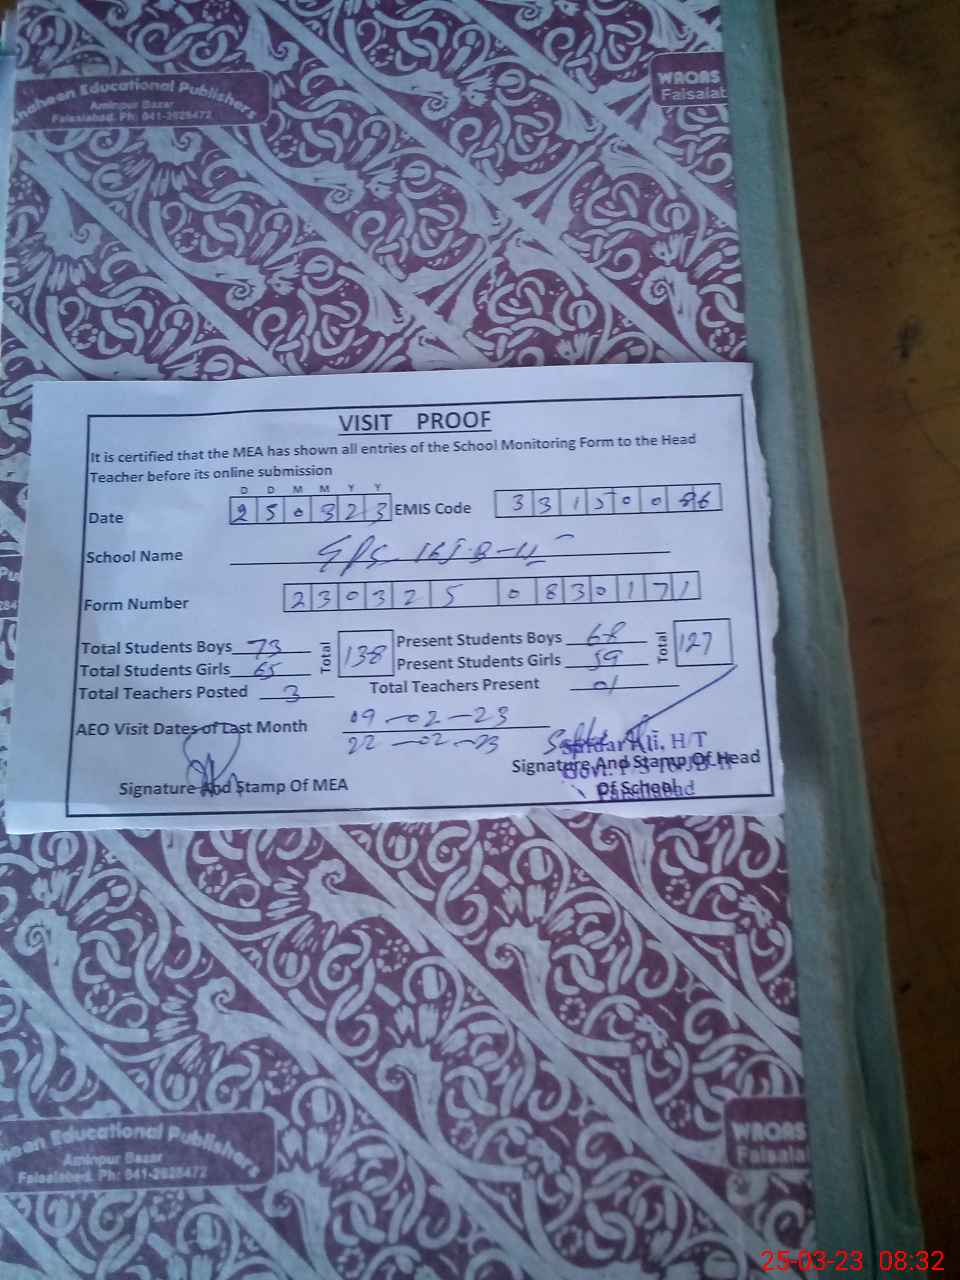 haheen Educational Publishers
Aminpur Bazar
Faisalabad. Ph: 041-2628472
WAQAS
Faisalab
VISIT PROOF
It is certified that the MEA has shown all entries of the School Monitoring Form to the Head
Teacher before its online submission
D D M M Y Y
Date 250323 EMIS Code
School Name
Form Number 230325 0830171
Total Students Boys 73 Total 138 Present Students Boys 68 Total 127
Total Students Girls 65 Present Students Girls 59
Total Teachers Posted 3 Total Teachers Present 01
AEO Visit Dates of Last Month 09-02-23
22-02-23
Safdar Ali, H/T
Signature And Stamp Of MEA Signature And Stamp Of Head
Of School
Faisalabad
heen Educational Publishers
Aminpur Bazar
Faisalabad. Ph: 041-2628472
WAQAS
Faisala
25-03-23 08:32